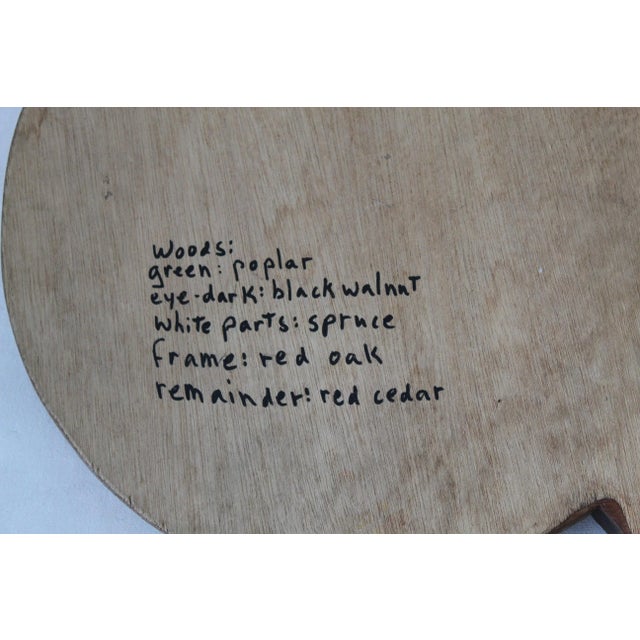 woods:
green: poplar
eye-dark: black walnut
white parts: spruce
frame: red oak
remainder: red cedar